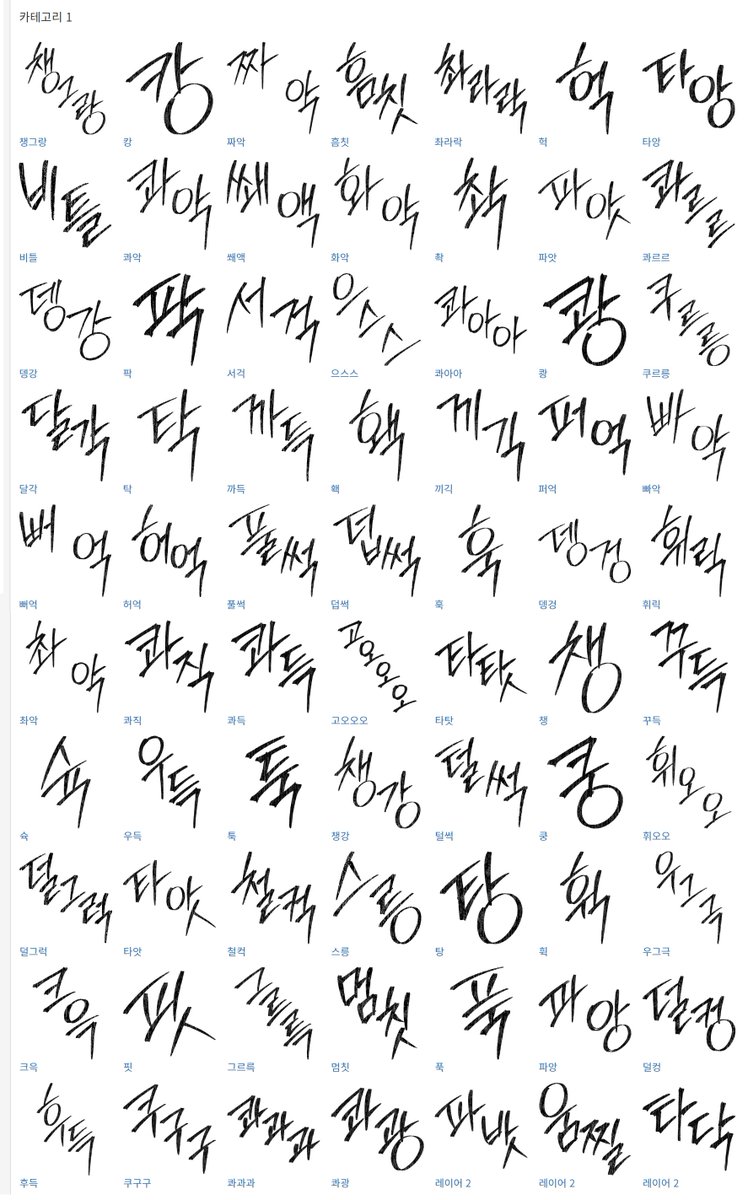 카테고리 1
챙그랑 캉 짜악 흠칫 촤라락 헉 타앙
쟁그랑 캉 짜악 흠칫 촤라락 헉 타앙
비틀 콰악 쐐액 화악 촥 파앗 콰르르
비틀 콰악 쐐액 화악 촥 파앗 콰르르
뎅강 팍 서걱 으스스 콰아아 쾅 쿠르릉
뎅강 팍 서걱 으스스 콰아아 쾅 쿠르릉
달각 탁 까득 홱 끼긱 퍼억 빠악
달각 탁 까득 홱 끼긱 퍼억 빠악
뻐억 허억 풀썩 덥썩 훅 뎅겅 휘릭
뻐억 허억 풀썩 덥썩 훅 뎅겅 휘릭
촤악 콰직 콰득 고오오오 타탓 챙 꾸득
촤악 콰직 콰득 고오오오 타탓 챙 꾸득
슉 우득 툭 챙강 털썩 쿵 휘오오
슉 우득 툭 챙강 털썩 쿵 휘오오
덜그럭 타앗 철컥 스릉 탕 휙 우그극
덜그럭 타앗 철컥 스릉 탕 휙 우그극
크윽 핏 그르륵 멈칫 푹 파앙 덜컹
크윽 핏 그르륵 멈칫 푹 파앙 덜컹
후득 쿠구구 콰콰과 콰광 파밧 움찔 타닥
후득 쿠구구 콰콰과 콰광 레이어 2 레이어 2 레이어 2